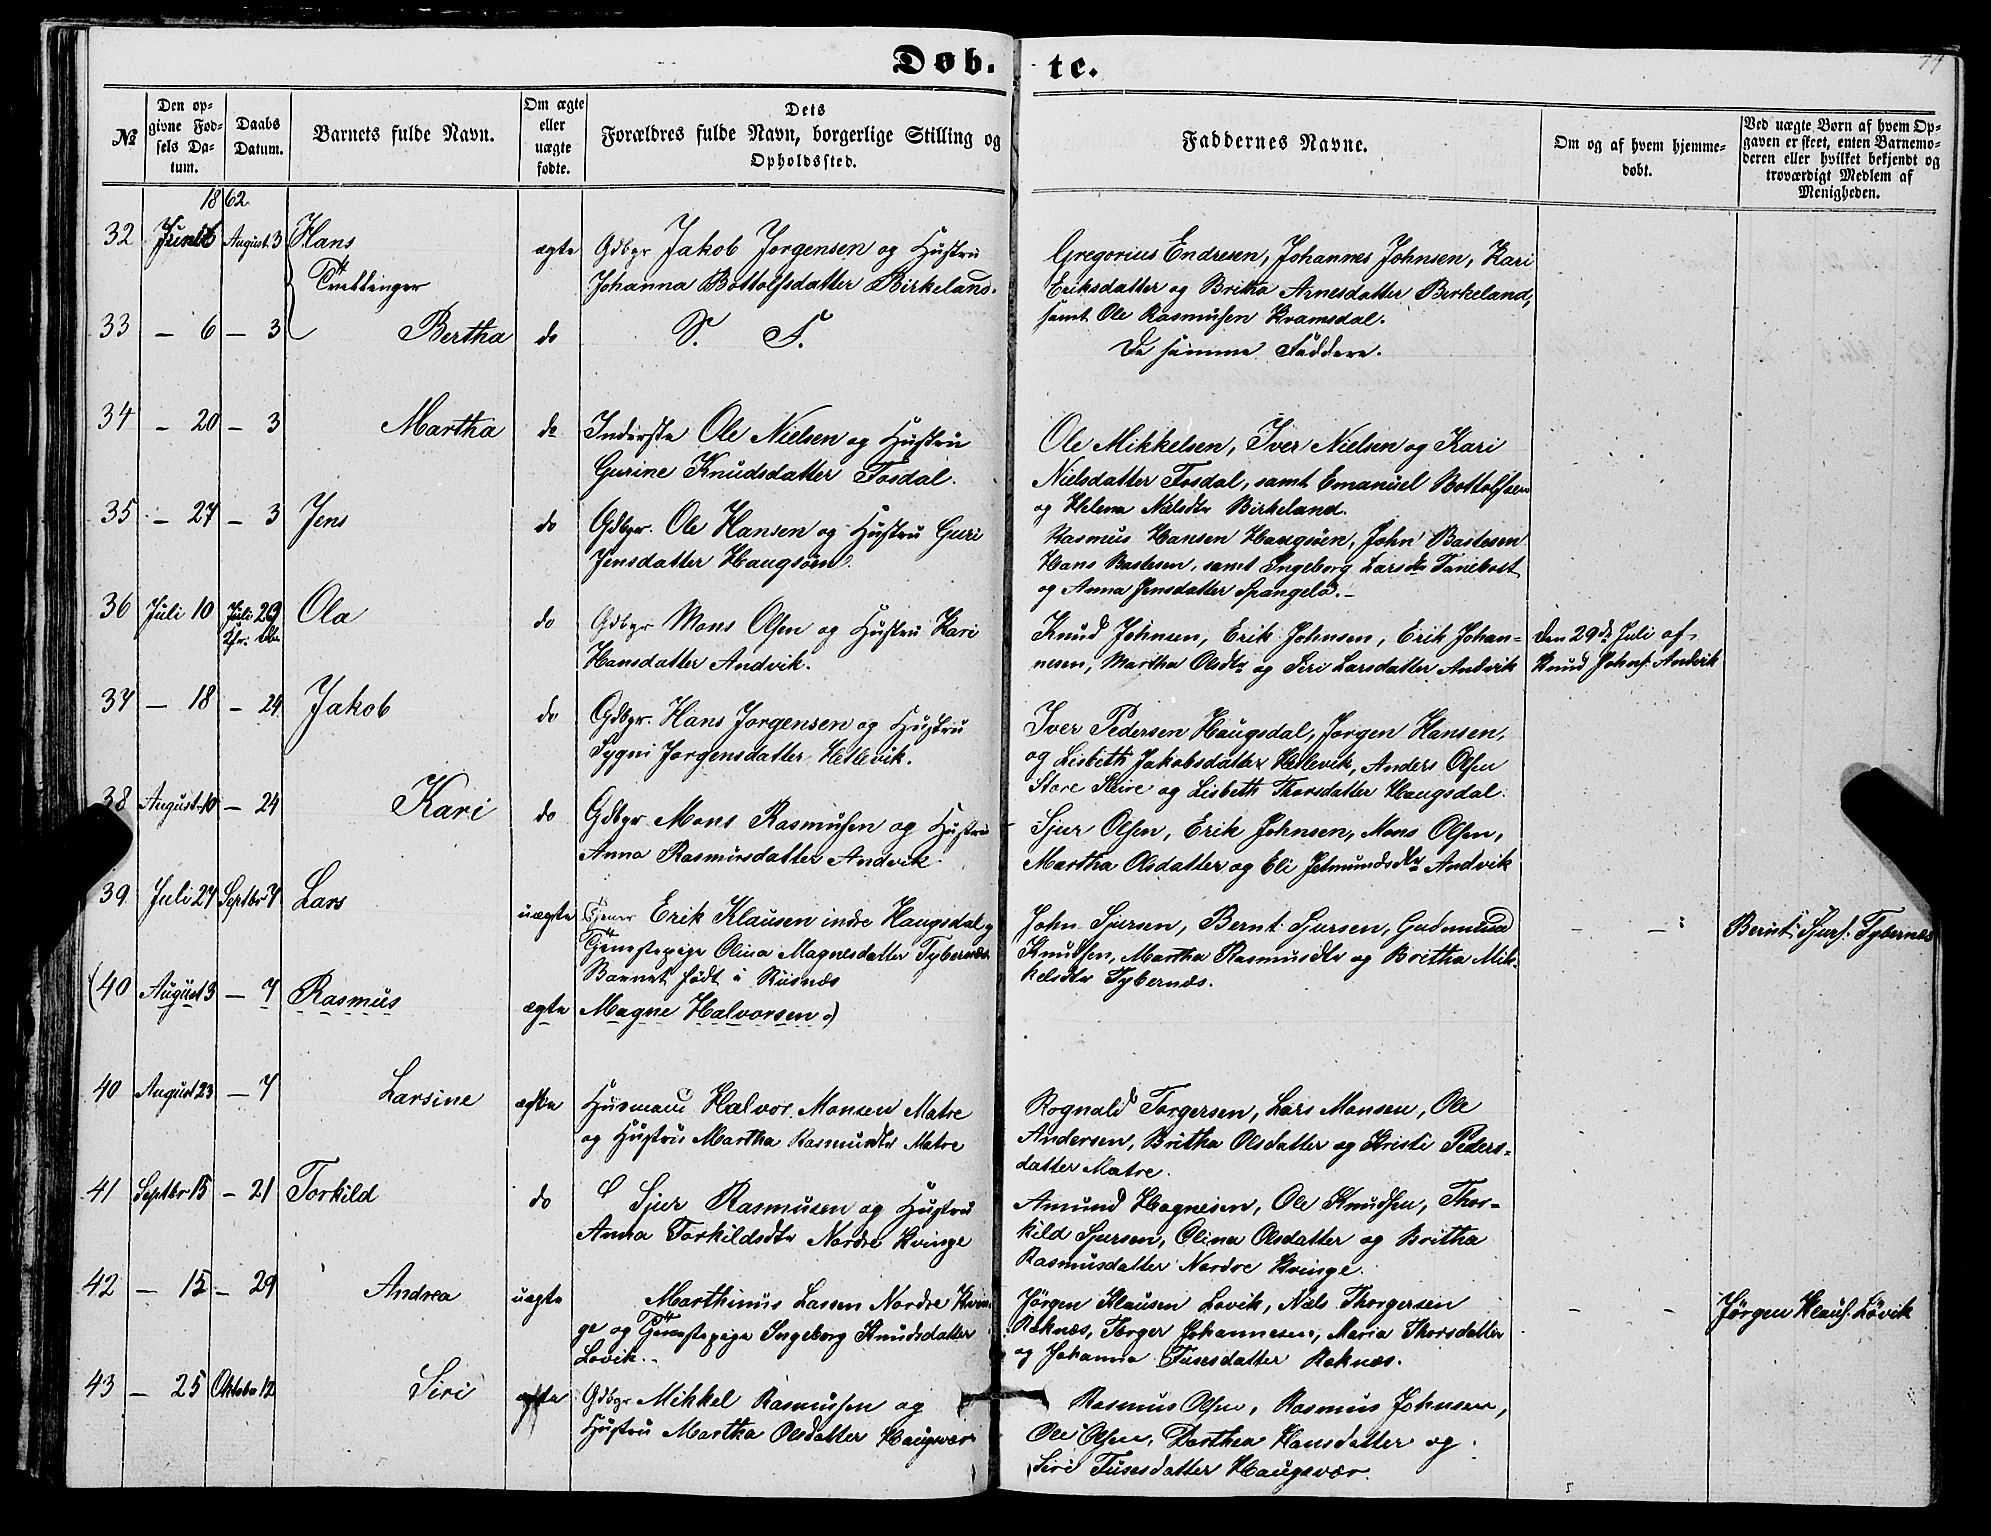 Døb- te.
№
Den op-
givne Fød-
sels Da-
tum.
Daabs
Datum.
Barnets fulde Navn.
Om ægte
eller
uægte
fødte.
Dets
Forældres fulde Navn, borgerlige Stilling og
Opholdssted.
Faddernes Navne.
Om og af hvem hjemme-
døbt.
Ved uægte Børn af hvem Op-
gaven er skeet, enten Barnemo-
deren eller hvilket bekjendt og
troværdigt Medlem af
Menigheden.
1862
32 Juni 6 August 3 Hans ægte Gdbgr Jakob Jorgensen og Hustru
Tvillinger Johanna Bottolfsdatter Birkeland.
Gregorius Endresen, Johannes Johnsen, Kari
Eriksdatter og Britha Arnesdatter Birkeland,
samt Ole Rasmusen Kvamsdal.
33 – 6 – 3 Bertha do S. F.
De samme Faddere.
34 – 20 – 3 Martha do Inderste Ole Nielsen og Hustru
Gurine Knudsdatter Fosdal.
Ole Mikkelsen, Iver Nielsen og Kari
Nielsdatter Fosdal, samt Emanuel Bottolfsen
og Helena Nilsdtr Birkeland.
35 – 27 – 3 Jens do Gdbgr. Ole Hansen og Hustru Guri
Jensdatter Haugsøen.
Rasmus Hansen Haugsøen, John Bastesen
Hans Bastesen, samt Ingeborg Larsdtr
og Anna Jensdatter Spangelo.–
36 Juli 10 Juli 29 Ola do Gdbgr Mons Olsen og Hustru Kari
Hansdatter Andvik.
Knud Johnsen, Erik Johnsen, Erik Johan-
nesen, Martha Olsdtr og Siri Larsdatter Andvik
den 29de Juli af
Knud Johns. Andvik
37 – 18 – 24 Jakob do Gdbgr. Hans Jorgensen og Hustru
Sygni Jorgensdatter Hetlevik.
Iver Pedersen Haugsdal, Jorgen Hansen,
og Lisbeth Jakobsdatter Hetlevik, Anders Olsen
Store Skire og Lisbeth Thorsdatter Haugsdal.
38 August 10 – 24 Kari do Gdbgr Mons Rasmusen og Hustru
Anna Rasmusdatter Andvik.
Sjur Olsen, Erik Johnsen, Mons Olsen,
Martha Olsdatter og Eli Jetmundsdtr Andvik
39 Juli 27 Septbr 7 Lars uægte Tjener Erik Klausen indre Haugsdal og
Tjenestepige Olina Magnesdatter Tybernæs
Barnet født i Risnæs
John Sjursen, Bernt Sjursen, Gudmund
Knudsen, Martha Rasmusdtr og Britha Mik-
kelsdtr Tybernæs.
– – Bernt Sjurs. Tybernæs
(40 August 3 – 7 Rasmus ægte Magne Halvorsen.)
40 August 23 – 7 Larsine ægte Husmand Halvor Monsen Matre
og Hustru Martha Rasmusdtr Matre
Rognald Torgersen, Lars Monsen, Ole
Andersen, Britha Olsdatter og Kristi Peders-
datter Matre.
41 Septbr 15 – 21 Torkild do Sjur Rasmusen og Hustru
Anna Torkildsdtr Nordre Kvinge
Amund Hognesen, Ole Knudsen, Thor-
kild Sjursen, Olina Olsdatter og Britha
Rasmusdatter Nordre Kvinge.
42 – 15 – 29 Andrea uægte Marthinus Larsen Nordre Kvin-
ge og Tjenestepige Ingeborg Knudsdatter
Lovik.
Jörgen Klausen Lovik, Nils Thorgersen
Reknæs, Torger Johannesen, Maria Thorsdatter
og Johanna Tusesdatter Reknæs.
– – Jörgen Klaus. Lövik
43 – 25 Oktober 12 Siri ægte Gdbgr Mikkel Rasmussen og
Hustru Martha Olsdatter Haugsvær
Rasmus Olsen, Rasmus Johnsen,
Ole Olsen, Dorthea Hansdatter og
Siri Tusesdatter Haugsvær.